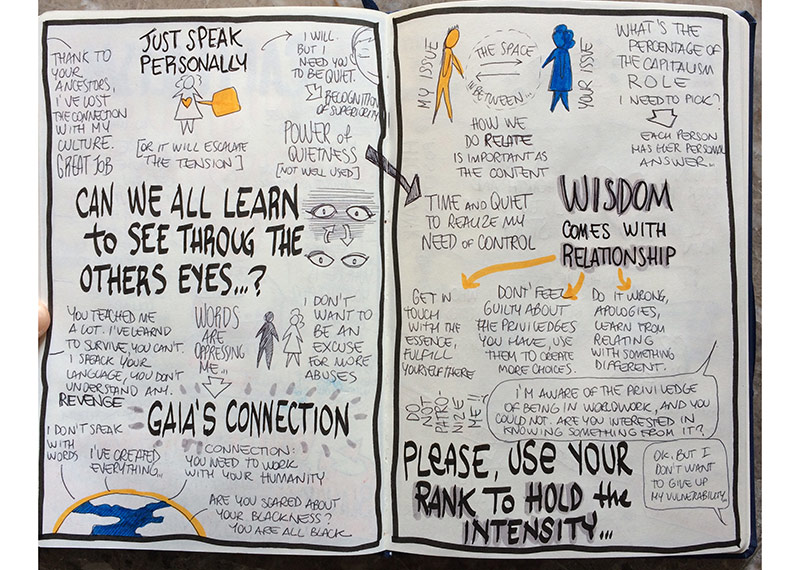 THANK TO
YOUR
ANCESTORS,
I'VE LOST
THE CONNECTION
WITH MY
CULTURE.
GREAT JOB
JUST SPEAK
PERSONALLY
[OR IT WILL ESCALATE
THE TENSION]
I WILL.
BUT I
NEED YOU
TO BE QUIET.
RECOGNITION
OF SUPERIORITY
POWER OF
QUIETNESS
[NOT WELL USED]
CAN WE ALL LEARN
to SEE THROUG THE
OTHERS EYES...?
YOU TEACHED ME
A LOT. I'VE LEARND
TO SURVIVE, YOU CAN'T.
I SPEACK YOUR
LANGUAGE, YOU DON'T
UNDERSTAND ANY.
REVENGE
WORDS
ARE
OPPRESSING
ME...
I DON'T
WANT TO
BE AN
EXCUSE
FOR MORE
ABUSES
GAIA'S CONNECTION
I DON'T SPEAK
WITH
WORDS
I'VE CREATED
EVERYTHING...
CONNECTION:
YOU NEED TO WORK
WITH YOUR HUMANITY
ARE YOU SCARED ABOUT
YOUR BLACKNESS?
YOU ARE ALL BLACK
MY ISSUE
THE SPACE
IN BETWEEN...
YOUR ISSUE
HOW WE
DO RELATE
IS IMPORTANT AS
THE CONTENT
WHAT'S THE
PERCENTAGE OF
THE CAPITALISM
ROLE
I NEED TO PICK?
EACH PERSON
HAS HER PERSONAL
ANSWER..
TIME AND QUIET
TO REALIZE MY
NEED OF CONTROL
WISDOM
COMES WITH
RELATIONSHIP
GET IN
TOUCH
WITH THE
ESSENCE,
FULFILL
YOURSELF THERE
DONT' FEEL
GUILTY ABOUT
THE PRIVILEDGES
YOU HAVE, USE
THEM TO CREATE
MORE CHOICES.
DO IT WRONG,
APOLOGIES,
LEARN FROM
RELATING
WITH SOMETHING
DIFFERENT.
DO
NOT
PATRO
NIZE
ME!!
I'M AWARE OF THE PRIVILEDGE
OF BEING IN WORLDWORK, AND YOU
COULD NOT. ARE YOU INTERESTED IN
KNOWING SOMETHING FROM IT?
OK. BUT I
DON'T WANT
TO GIVE UP
MY VULNERABILITY
PLEASE, USE YOUR
RANK TO HOLD the
INTENSITY...